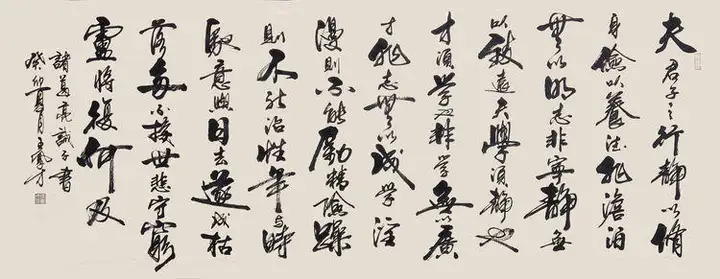 夫君子之行静以脩
身儉以養德非澹泊
無以明志非寧静無
以致遠夫學須静也
才須學也非學無以廣
才非志無以成學淫
漫則不能勵精險躁
則不能治性年与時
馳意与日去遂成枯
落多不接世悲守窮
廬將復何及
諸葛亮誡子書
癸卯夏月王